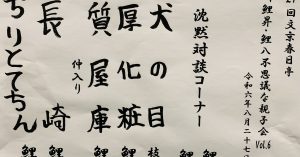 回文京春日亭
鯉昇・鯉八不思議な親子会 Vol.6
令和六年八月二十七
沈黙対談コーナー
犬の目 枝
厚化粧 鯉
質屋庫 鯉
仲入り
長崎 鯉
ちりとてちん 鯉